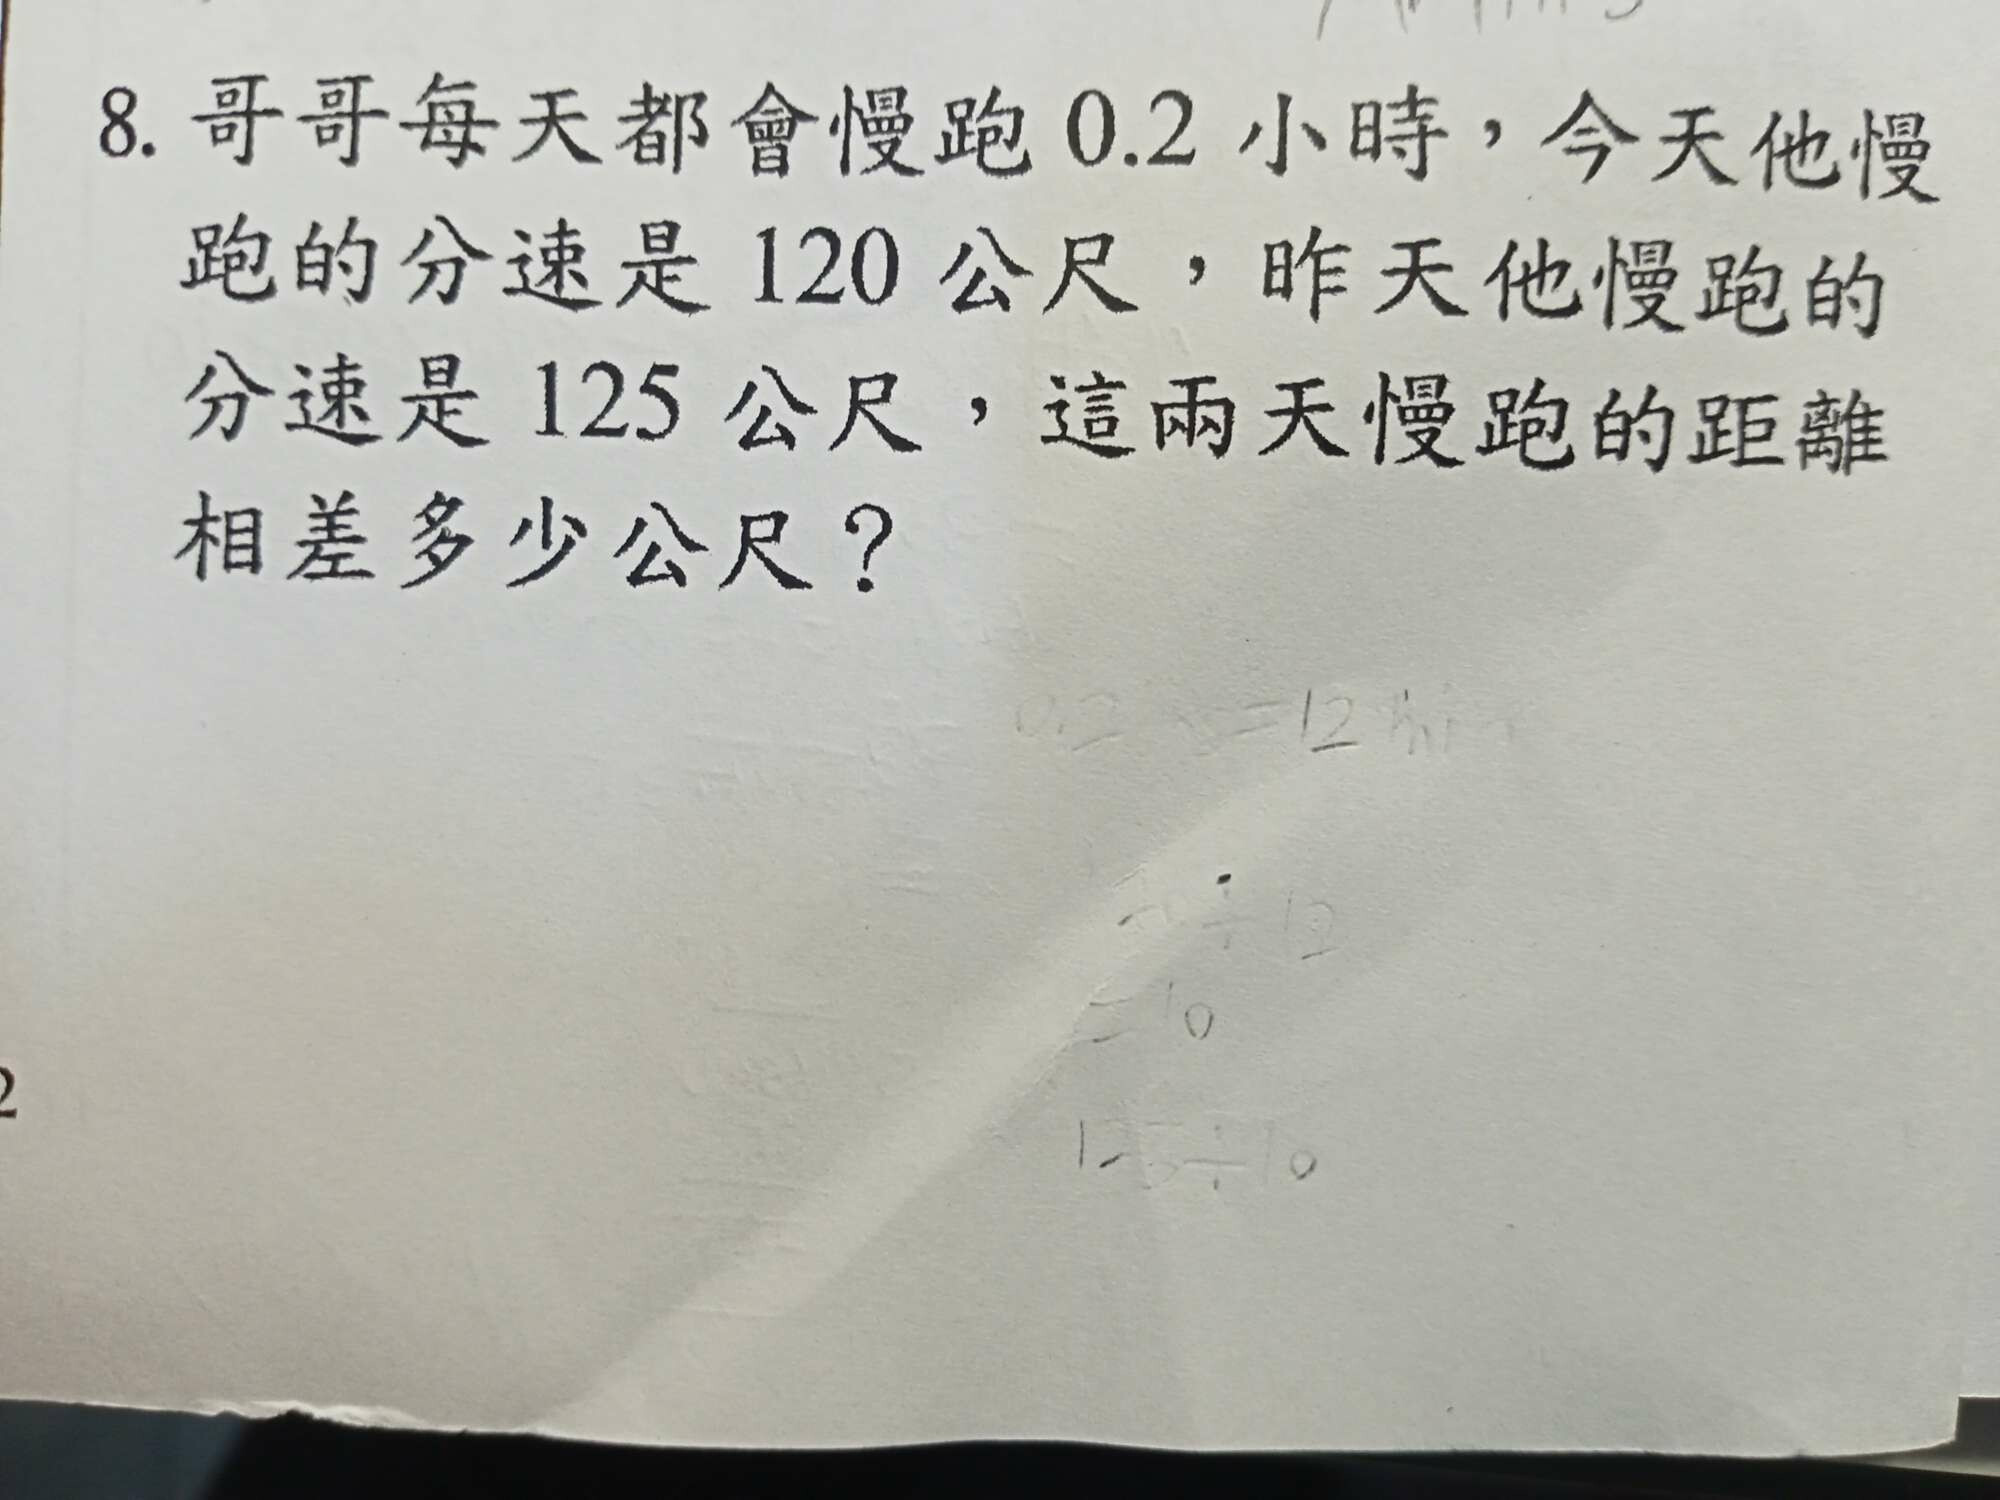 8. 哥哥每天都會慢跑 0.2 小時，今天他慢
跑的分速是 120 公尺，昨天他慢跑的
分速是 125 公尺，這兩天慢跑的距離
相差多少公尺？
0.2 = 12
÷ 12
= 10
125 ÷ 10
2